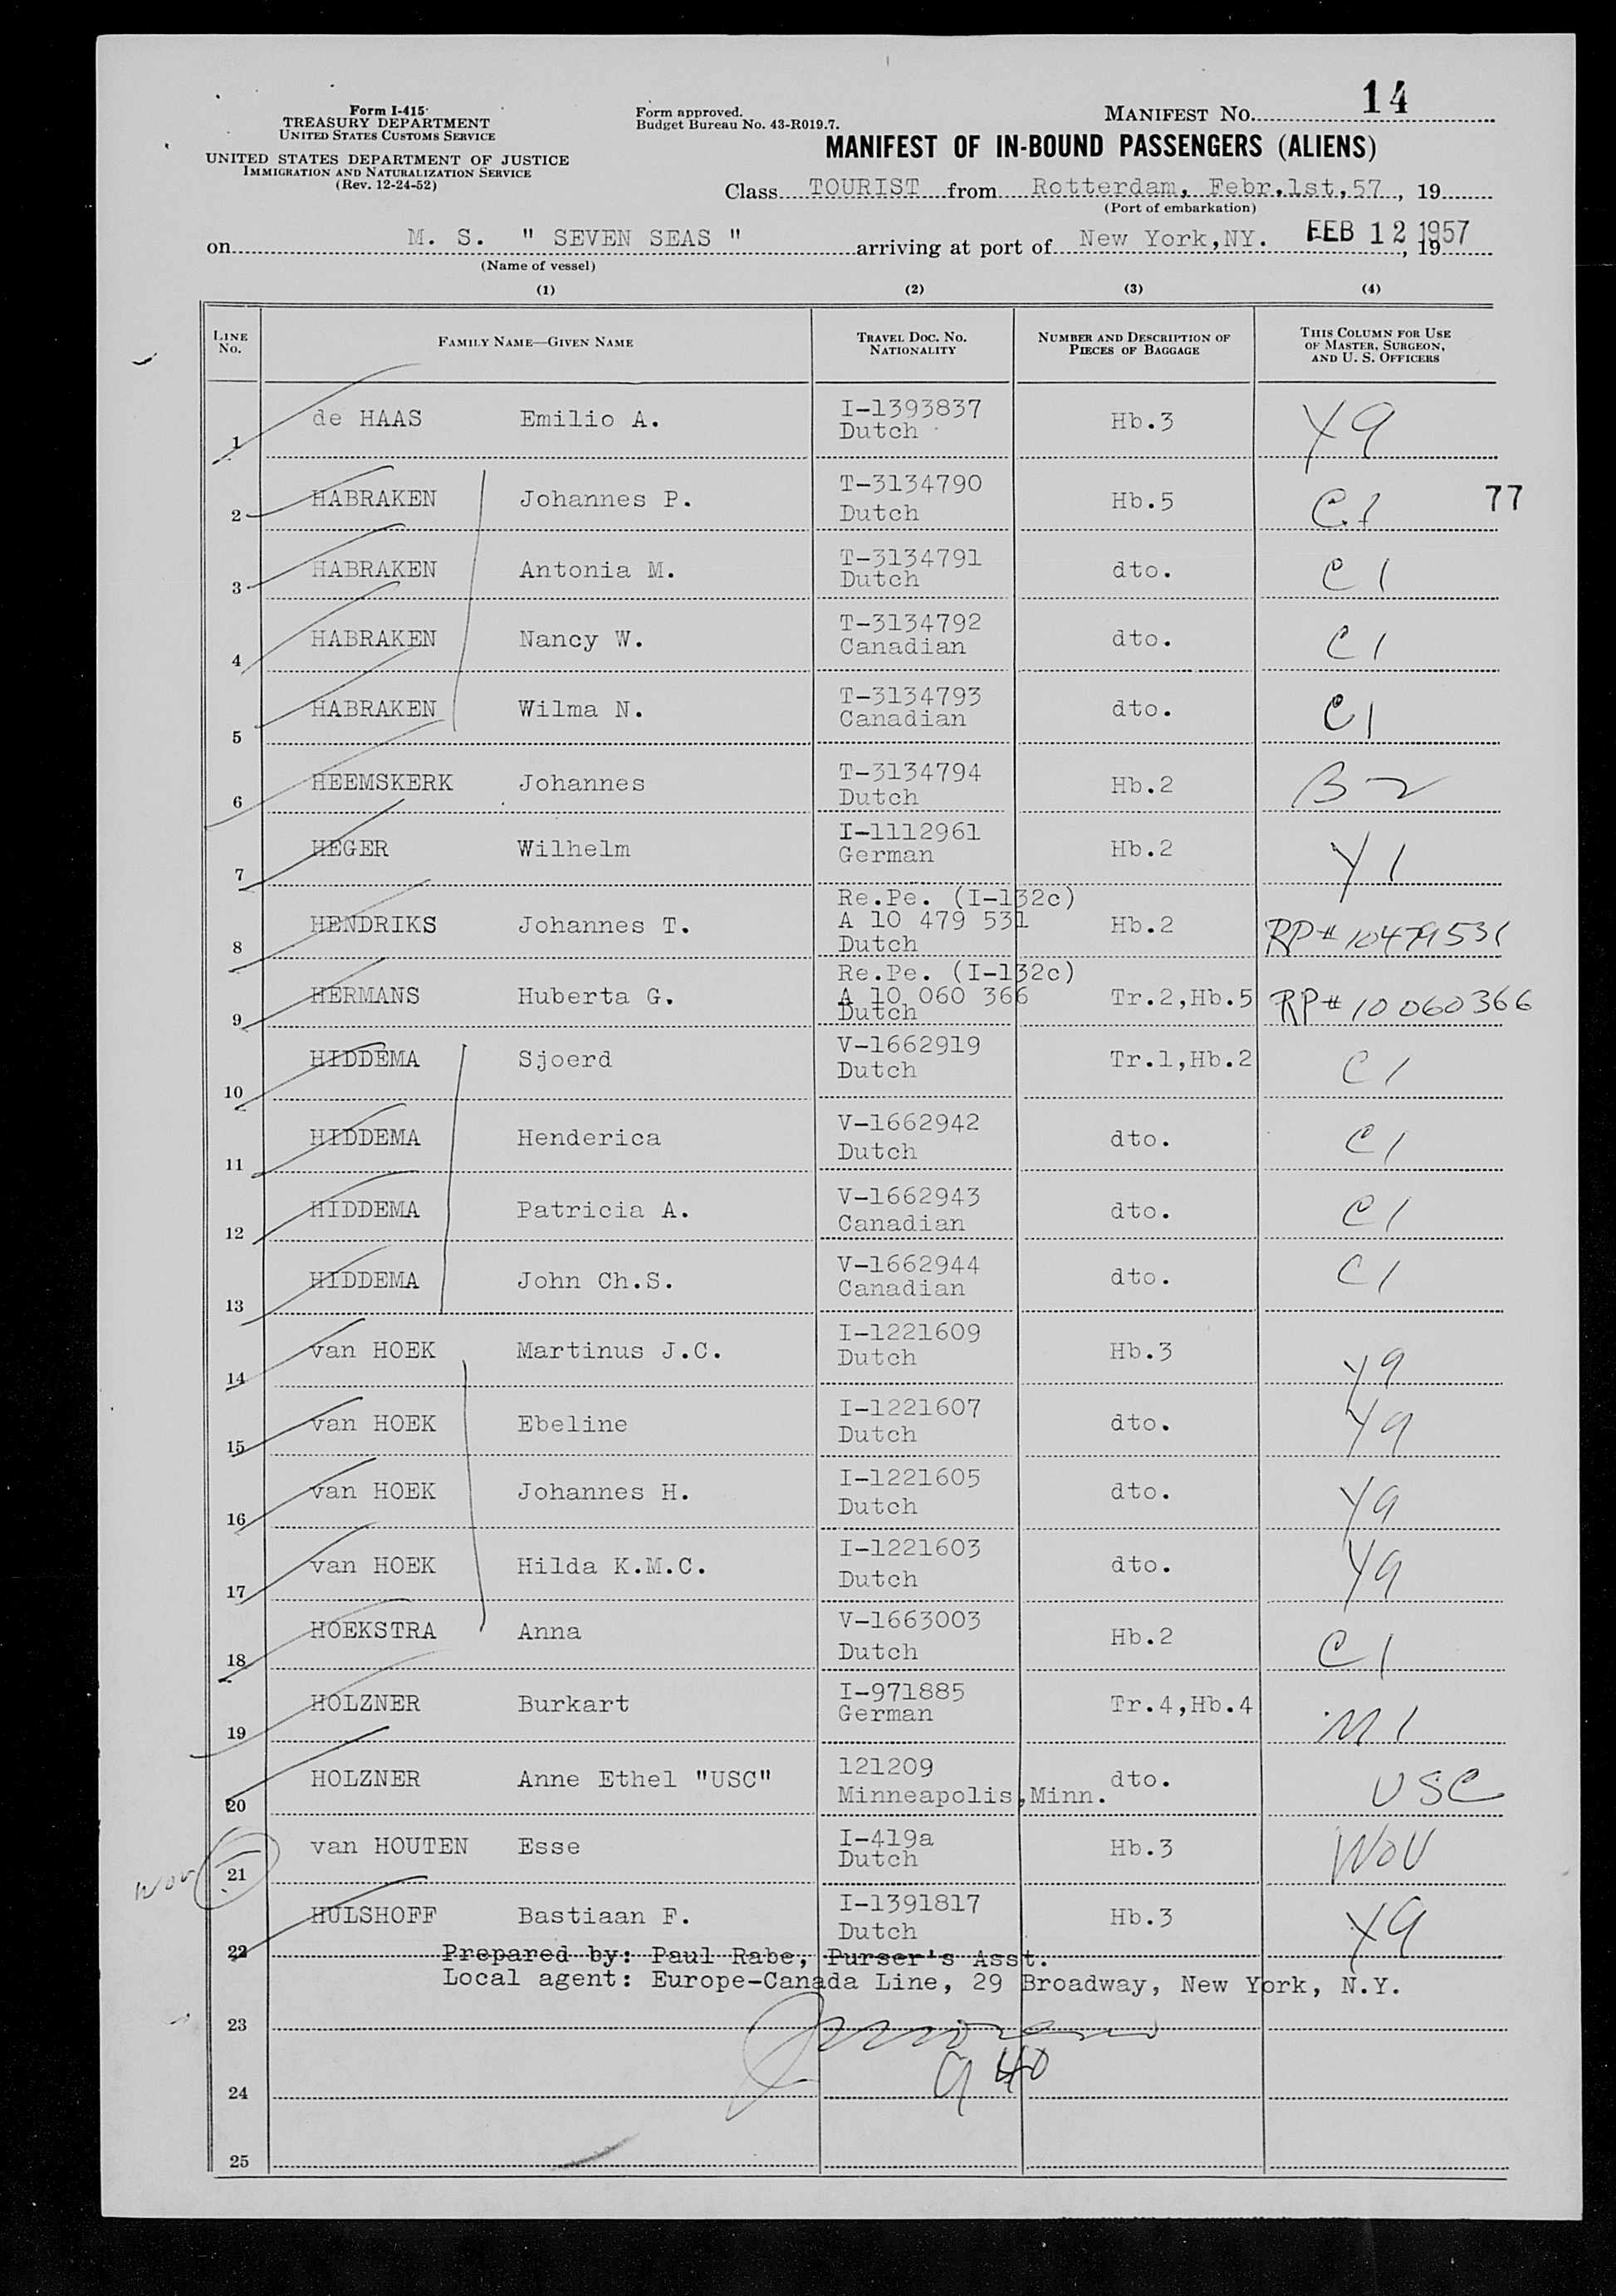 Form I-415
TREASURY DEPARTMENT
UNITED STATES CUSTOMS SERVICE
UNITED STATES DEPARTMENT OF JUSTICE
IMMIGRATION AND NATURALIZATION SERVICE
(Rev. 12-24-52)
Form approved.
Budget Bureau No. 43-R019.7.
MANIFEST NO. 14
MANIFEST OF IN-BOUND PASSENGERS (ALIENS)
Class TOURIST from Rotterdam, Febr.1st,57, 19
(Port of embarkation)
on M. S. " SEVEN SEAS " arriving at port of New York,NY. FEB 12 1957, 19
(Name of vessel)
(1) (2) (3) (4)
LINE NO. FAMILY NAME—GIVEN NAME TRAVEL DOC. NO. NATIONALITY NUMBER AND DESCRIPTION OF PIECES OF BAGGAGE THIS COLUMN FOR USE OF MASTER, SURGEON, AND U. S. OFFICERS
1 de HAAS Emilio A. I-1393837 Dutch Hb.3 Y9
2 HABRAKEN Johannes P. T-3134790 Dutch Hb.5 C1 77
3 HABRAKEN Antonia M. T-3134791 Dutch dto. C1
4 HABRAKEN Nancy W. T-3134792 Canadian dto. C1
5 HABRAKEN Wilma N. T-3134793 Canadian dto. C1
6 HEEMSKERK Johannes T-3134794 Dutch Hb.2 B2
7 HEGER Wilhelm I-1112961 German Hb.2 Y1
8 HENDRIKS Johannes T. Re.Pe. (I-132c) A 10 479 531 Dutch Hb.2 RP# 10479531
9 HERMANS Huberta G. Re.Pe. (I-132c) A 10 060 366 Dutch Tr.2,Hb.5 RP# 10 060366
10 HIDDEMA Sjoerd V-1662919 Dutch Tr.1,Hb.2 C1
11 HIDDEMA Henderica V-1662942 Dutch dto. C1
12 HIDDEMA Patricia A. V-1662943 Canadian dto. C1
13 HIDDEMA John Ch.S. V-1662944 Canadian dto. C1
14 van HOEK Martinus J.C. I-1221609 Dutch Hb.3 Y9
15 van HOEK Ebeline I-1221607 Dutch dto. Y9
16 van HOEK Johannes H. I-1221605 Dutch dto. Y9
17 van HOEK Hilda K.M.C. I-1221603 Dutch dto. Y9
18 HOEKSTRA Anna V-1663003 Dutch Hb.2 C1
19 HOLZNER Burkart I-971885 German Tr.4,Hb.4 M1
20 HOLZNER Anne Ethel "USC" 121209 Minneapolis,Minn. dto. USC
WOV 21 van HOUTEN Esse I-419a Dutch Hb.3 WOV
22 HULSHOFF Bastiaan F. I-1391817 Dutch Hb.3 Y9
Prepared by: Paul Rabe, Purser's Asst.
Local agent: Europe-Canada Line, 29 Broadway, New York, N.Y.
23
24 940
25